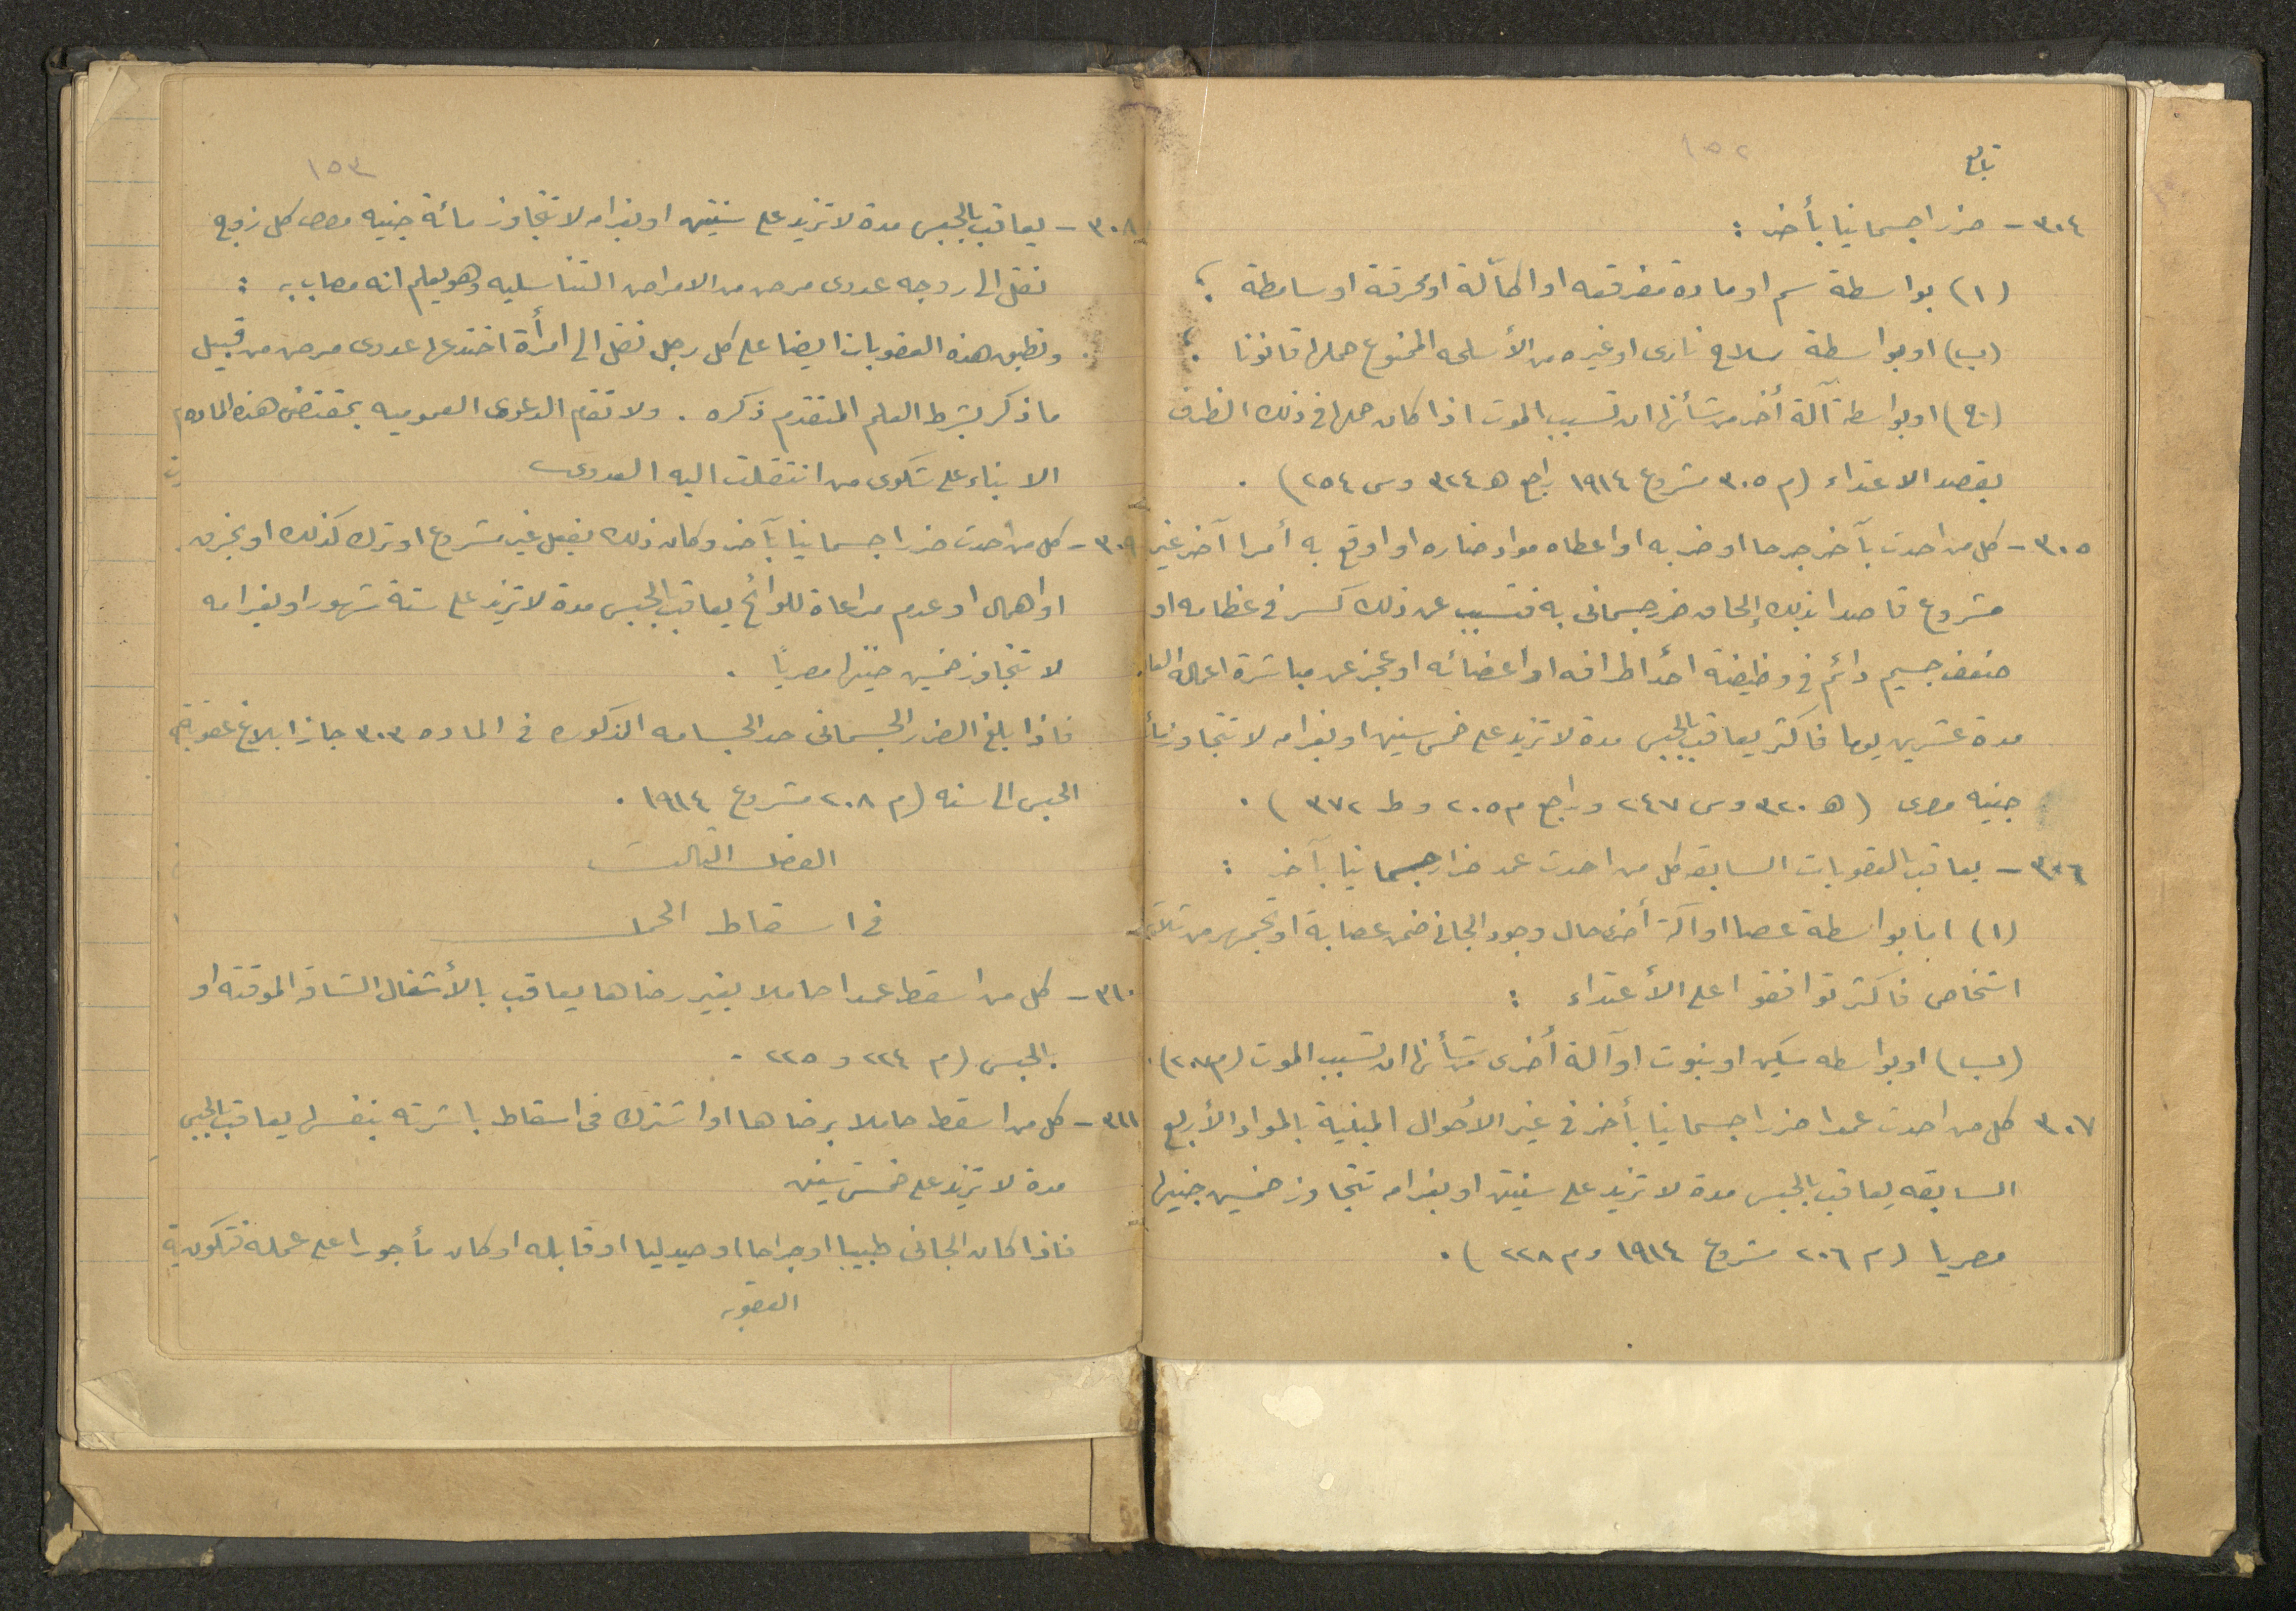 ١٥٢
تابع
٣٠٤ - ضررا جسمانيا بأخر :
(١) بواسطة سم او مادة مفرقعه او اكالة او محرقة او سامطة ؛
(ب) او بواسطة سلاح نارى او غيره من الأسلحه الممنوع حملها قانونا .
(ج) او بواسطة آلة أخر من شأنها ان تسبب الموت اذا كان حملها فى ذلك الظرف
بقصد الاعتداء (م ٣٠٥ مشروع ١٩١٤ راجع ه ٣٢٤ وس ٢٥٤) .
٣٠٥ - كل من احدث بآخر جرحا او ضربه او اعطاه مواد ضاره او اوقع به أمرا آخر غير
مشروع قاصدا بذلك إلحاق ضرر جسمانى به فتسبب عن ذلك كسر فى عظامه او
ضعف جسيم دائم فى وظيفة احد اطرافه او اعضائه او عجز عن مباشرة اعماله
مدة عشرين يوما فاكثر يعاقب بالحبس مدة لا تزيد على خمس سنين او بغرامه لا تتجاوز مائة
جنيه مصرى (ه ٣٢٠ وس ٢٤٧ وراجع م ٢٠٥ وط ٣٧٢) .
٣٠٦ - يعاقب بالعقوبات السابقه كل من احدث عمد ضرار جسمانيا بآخر :
(١) اما بواسطة عصا او آلة أخرى حال وجود الجانى ضمن عصابة او تجمهر من ثلاثة
اشخاص فاكثر توافقوا على الأعتداء :
(ب) او بواسطه سكين او نبوت او آلة أخرى من شأنها ان تسبب الموت (م ٢٠٨) .
٣٠٧ كل من احدث عمدا ضررا جسمانيا بأخر فى غير الاحوال المبنية بالمواد الأربع
السابقه يعاقب بالحبس مدة لا تزيد على سنتين او بغرامه تتجاوز خمسين جنيها
مصريا (م ٢٠٦ مشروع ١٩١٤ وم ٢٢٨) .
١٥٣
٣٠٨ - يعاقب بالحبس مدة لا تزيد على سنتين او بغرامه لا تتجاوز مائة جنيه مصرى كل زوج
نقل الى زوجه عدوى مرض من الامراض التناسليه وهو يعلم انه مصاب به :
وتطبق هذه العقوبات ايضا على كل رجل نقل الى امرأة اختدعها عدوى مرض من قبيل
ما ذكر بشرط العلم المتقدم ذكره . ولا تقام الدعوى العموميه بمقتضى هذه الماده
الا بناء على شكوى من انتقلت اليه العدوى
٣٠٩ - كل من احدث ضررا جسمانيا بآخر وكان ذلك بفعل غير مشروع او ترك كذلك او بخرق
او اهمال او عدم مراعاة للوائح يعاقب بالحبس مدة لا تزيد على ستة شهور او بغرامه
لا تتجاوز خمسين جنيها مصريًا .
فاذا بلغ الضرر الجسمانى حد الجسامه المذكوره فى الماده ٣٠٣ جاز ابلاغ عقوبة
الحبس الى سنه (م ٢٠٨ مشروع ١٩١٤ .
الفصل الثالث
فى اسقاط الحمل
٣١٠ - كل من اسقط عمدا حاملا بغير رضاها يعاقب بالأشغال الشاقه الموقته او
بالحبس (م ٢٢٤ و ٢٢٥ .
٣١١ - كل من اسقط حاملا برضاها او اشترك فى اسقاط باشرته بنفسها يعاقب بالحبس
مدة لا تزيد على خمس سنين
فاذا كان الجانى طبيبا او جراحا او صيدليا او قابله او كان مأجورا على عمله فتكون
العقوبه